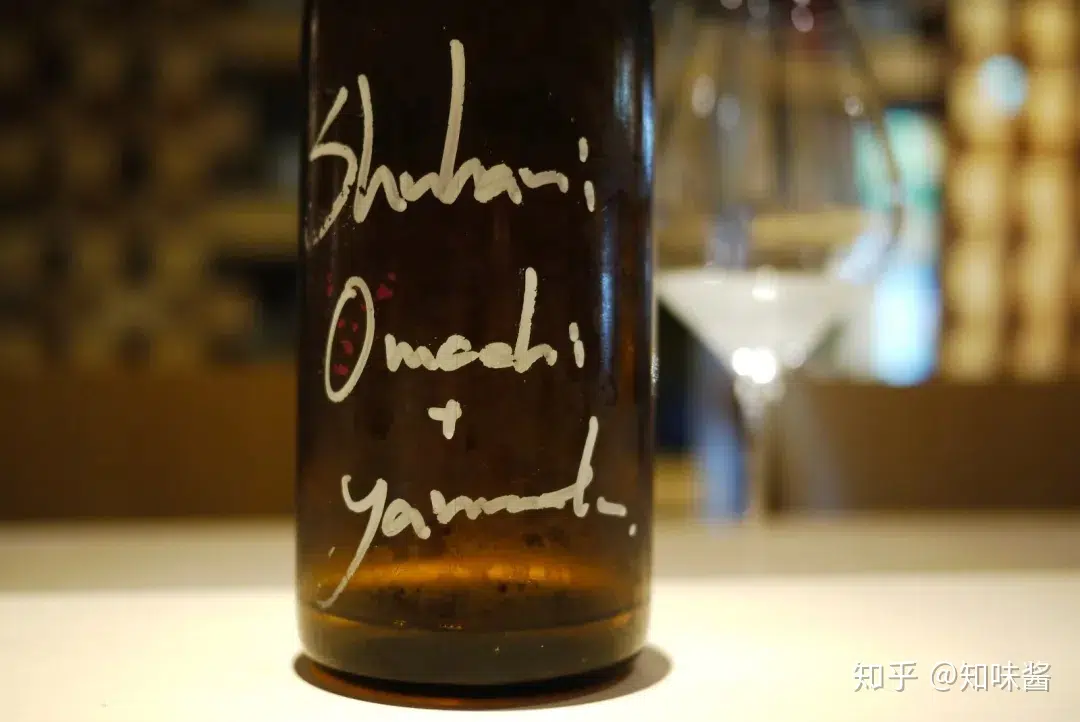 Shuhari
Omachi
+
yamada.
知乎 @知味酱